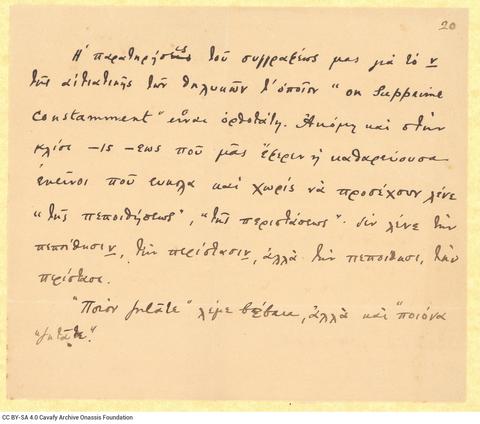 20
Ἡ παρατήρησις τοῦ συγγραφέως μας γιὰ τὸ ν
τῆς αἰτιατικῆς τῶν θηλυκῶν τ' ὁποῖον "on supprime
constamment" εἶναι ὀρθοτάτη. Ἀκόμη καὶ στὴν
κλίσι -ις -εως ποῦ μᾶς ἔφερεν ἡ καθαρεύουσα
ἐκεῖνοι ποῦ εὔκολα καὶ χωρὶς νὰ προσέχουν λένε
"τῆς πεποιθήσεως", "τῆς περιστάσεως" δὲν λένε τὴν
πεποίθησιν, τὴν περίστασιν, ἀλλὰ τὴν πεποίθησι, τὴν
περίστασι.
"Ποιὸν ζητᾶτε" λέμε βέβαια, ἀλλὰ καὶ "ποιόνα
ζητᾶτε".
CC BY-SA 4.0 Cavafy Archive Onassis Foundation